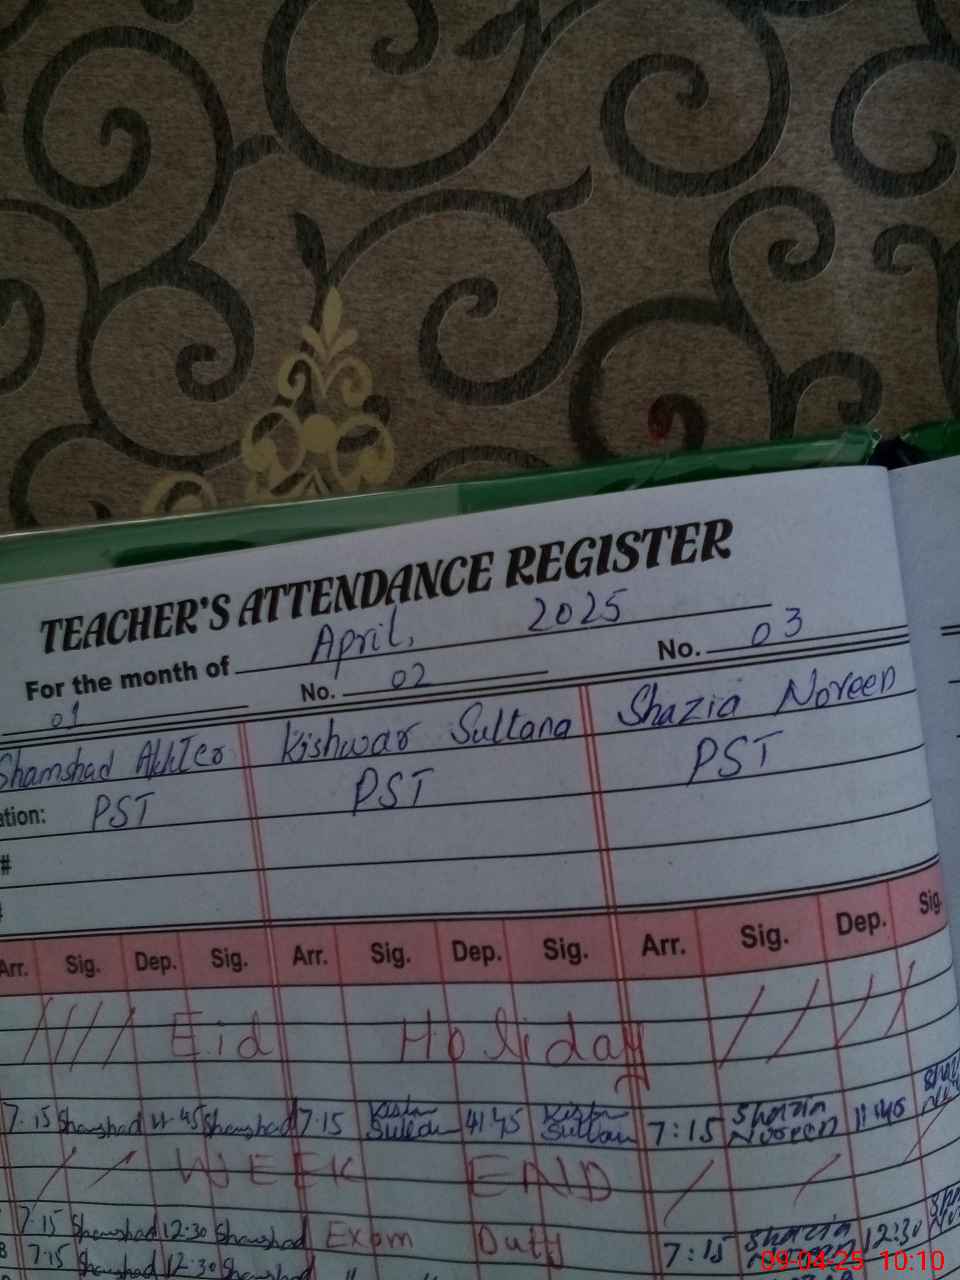 TEACHER'S ATTENDANCE REGISTER
For the month of April, 2025
01 No. 02 No. 03
Shamshad Akhter Kishwar Sultana Shazia Noreen
ation: PST PST PST
#
Arr. Sig. Dep. Sig. Arr. Sig. Dep. Sig. Arr. Sig. Dep. Sig.
Eid Holiday
7.15 Shamshad 11.45 Shamshad 7.15 Kishwar Sultana 11:45 Kishwar Sultana 7:15 Shazia Noreen 11:45
WEEK END
7.15 Shamshad 12.30 Shamshad Exam Duty 7:15 Shazia Noreen 12:30
8 7.15 Shamshad 12.30 Shamshad "
09-04-25 10:10